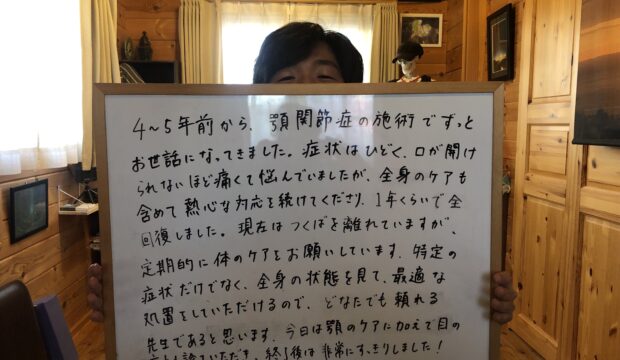 4〜5年前から、顎関節症の施術でずっと
お世話になってきました。症状はひどく、口が開け
られないほど痛くて悩んでいましたが、全身のケアも
含めて熱心な対応を続けてくださり、1年くらいで全
回復しました。現在はつくばを離れていますが、
定期的に体のケアをお願いしています。特定の
症状だけでなく、全身の状態を見て、最適な
処置をしていただけるので、どなたでも頼れる
先生であると思います。今日は顎のケアに加えて目の
終了後は非常にすっきりしました!